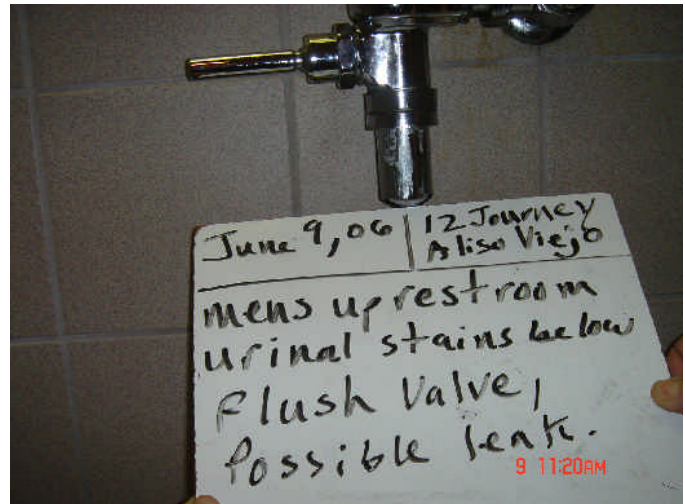 June 9, 06
12 Journey
Aliso Viejo
mens up restroom
urinal stains below
flush valve,
Possible leak.
9 11:20AM